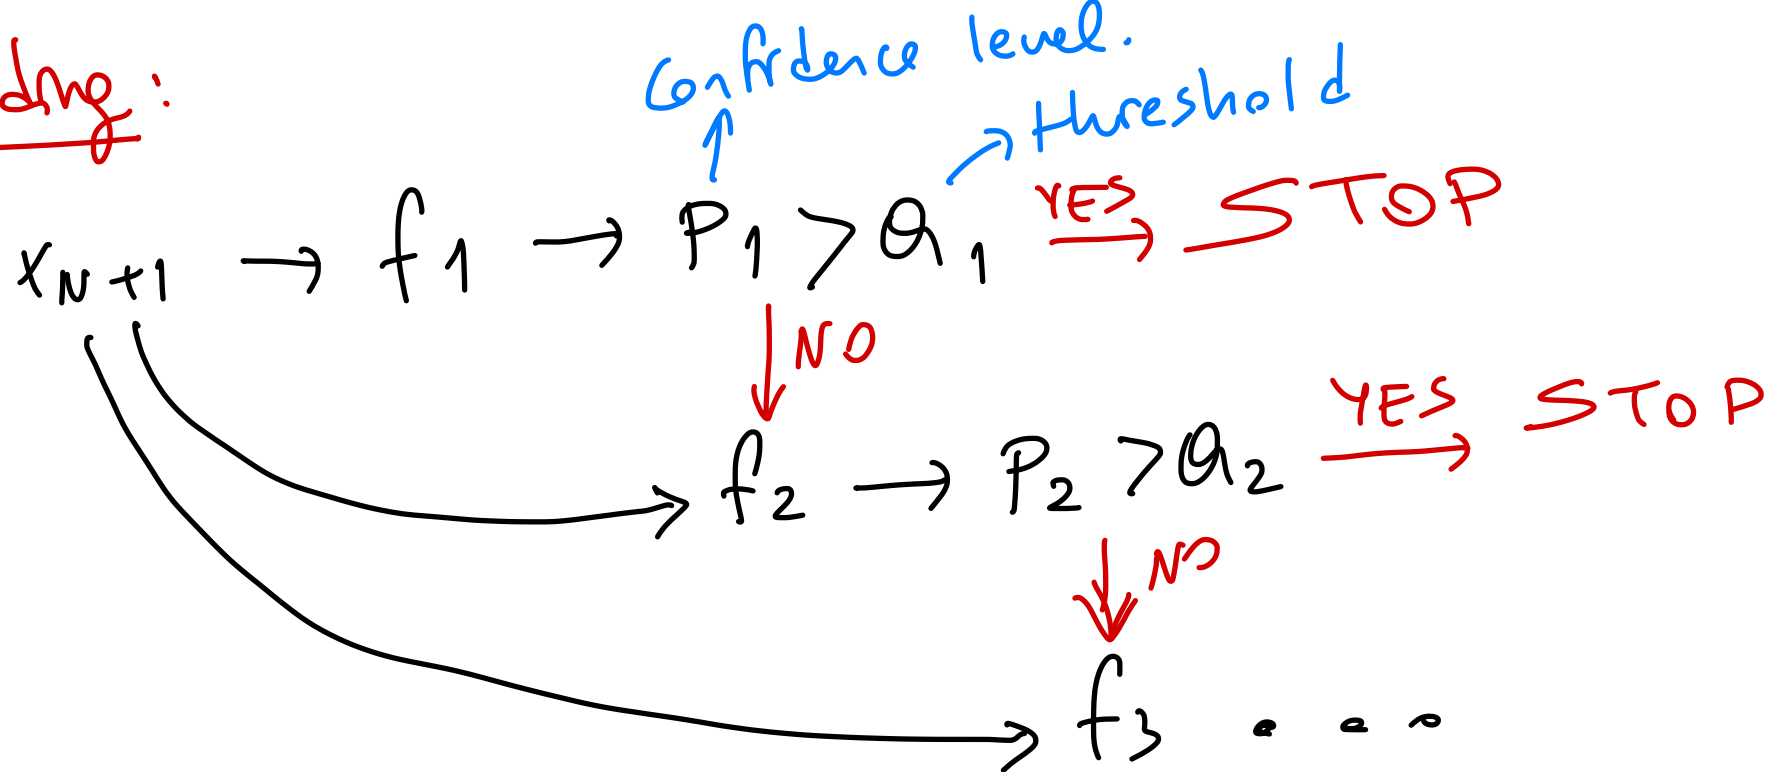 ding:
Confidence level.
threshold
x_{N+1} → f_1 → P_1 > θ_1 YES → STOP
NO
f_2 → P_2 > θ_2 YES → STOP
NO
f_3 ...